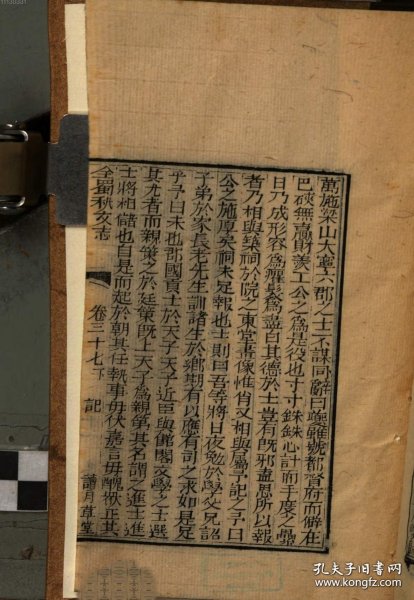 萬施梁山大寧六郡之士不謀同辭曰夔雖號都督府而僻在
巴硤無贏財羨工公之為是役也寸寸銖銖心計而手度之壘
日乃成形容為癯髮為盡白其德於士豈有既邪盍思所以報
者乃相與築祠於院之東堂畫像惟肖又相與屬予記之予曰
公之施厚矣祠未足報也士則曰吾等將日夜勉於學父兄詔
子弟於家長老先生訓諸生於鄉期有以應有司之求如是足
乎予曰未也郡國貢士於天子天子近臣與館閣文學之士選
其尤者而親策之於廷策既上天子為親第其名謂之進士進
士將相儲也自是而起於朝其任執事毋伏嘉言毋醜徼正其
全蜀秇文志
卷三十七下
記
讀月草堂
孔夫子旧书网
www.kongfz.com